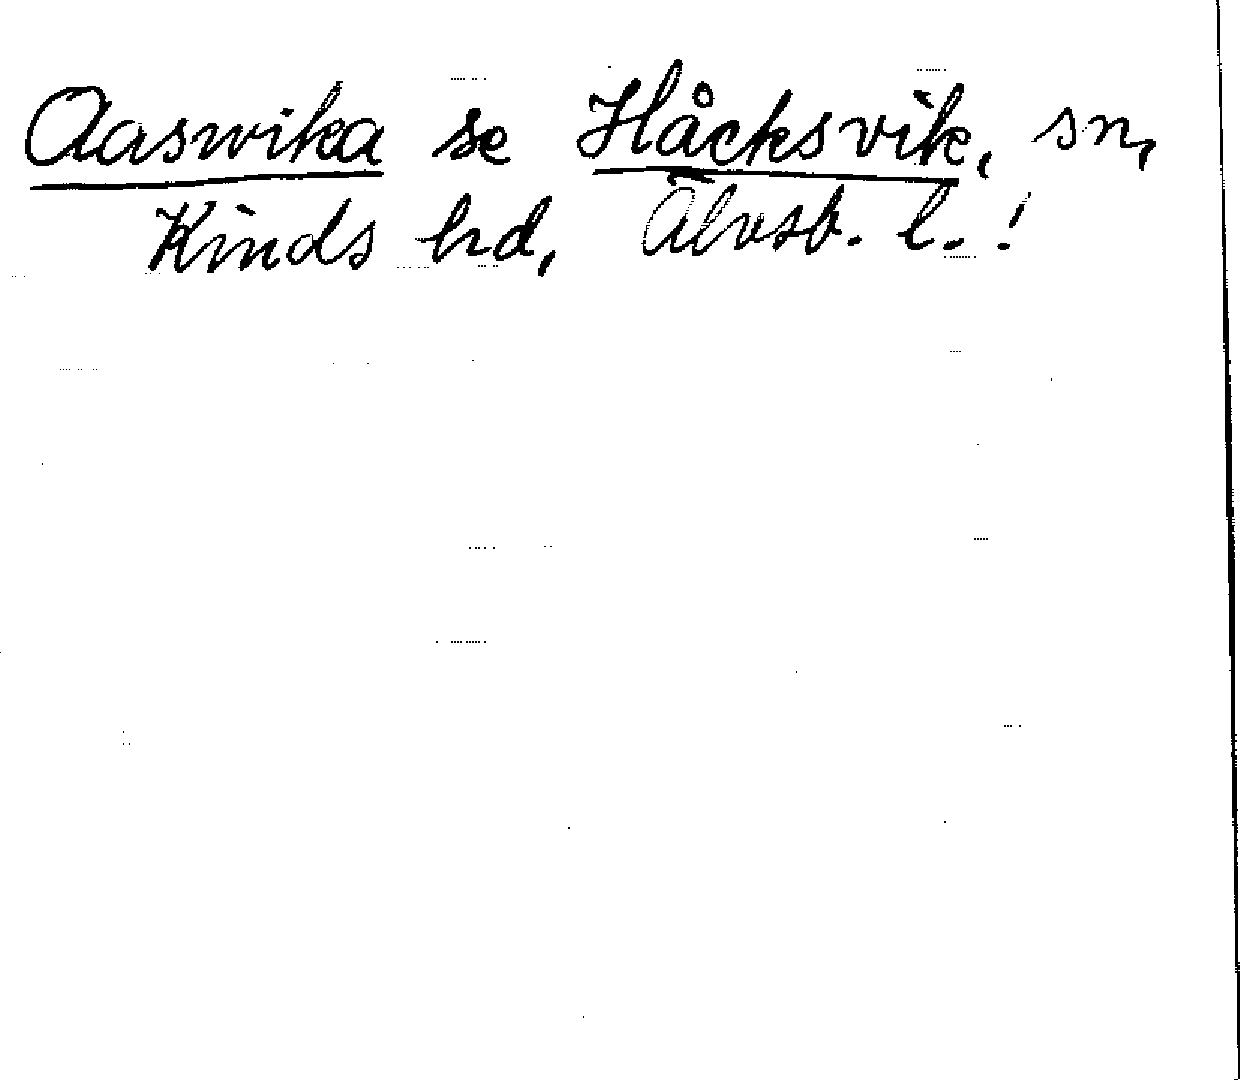 Aaswika se Håcksvik, sn,
Kinds hd, Älvsb. l. !